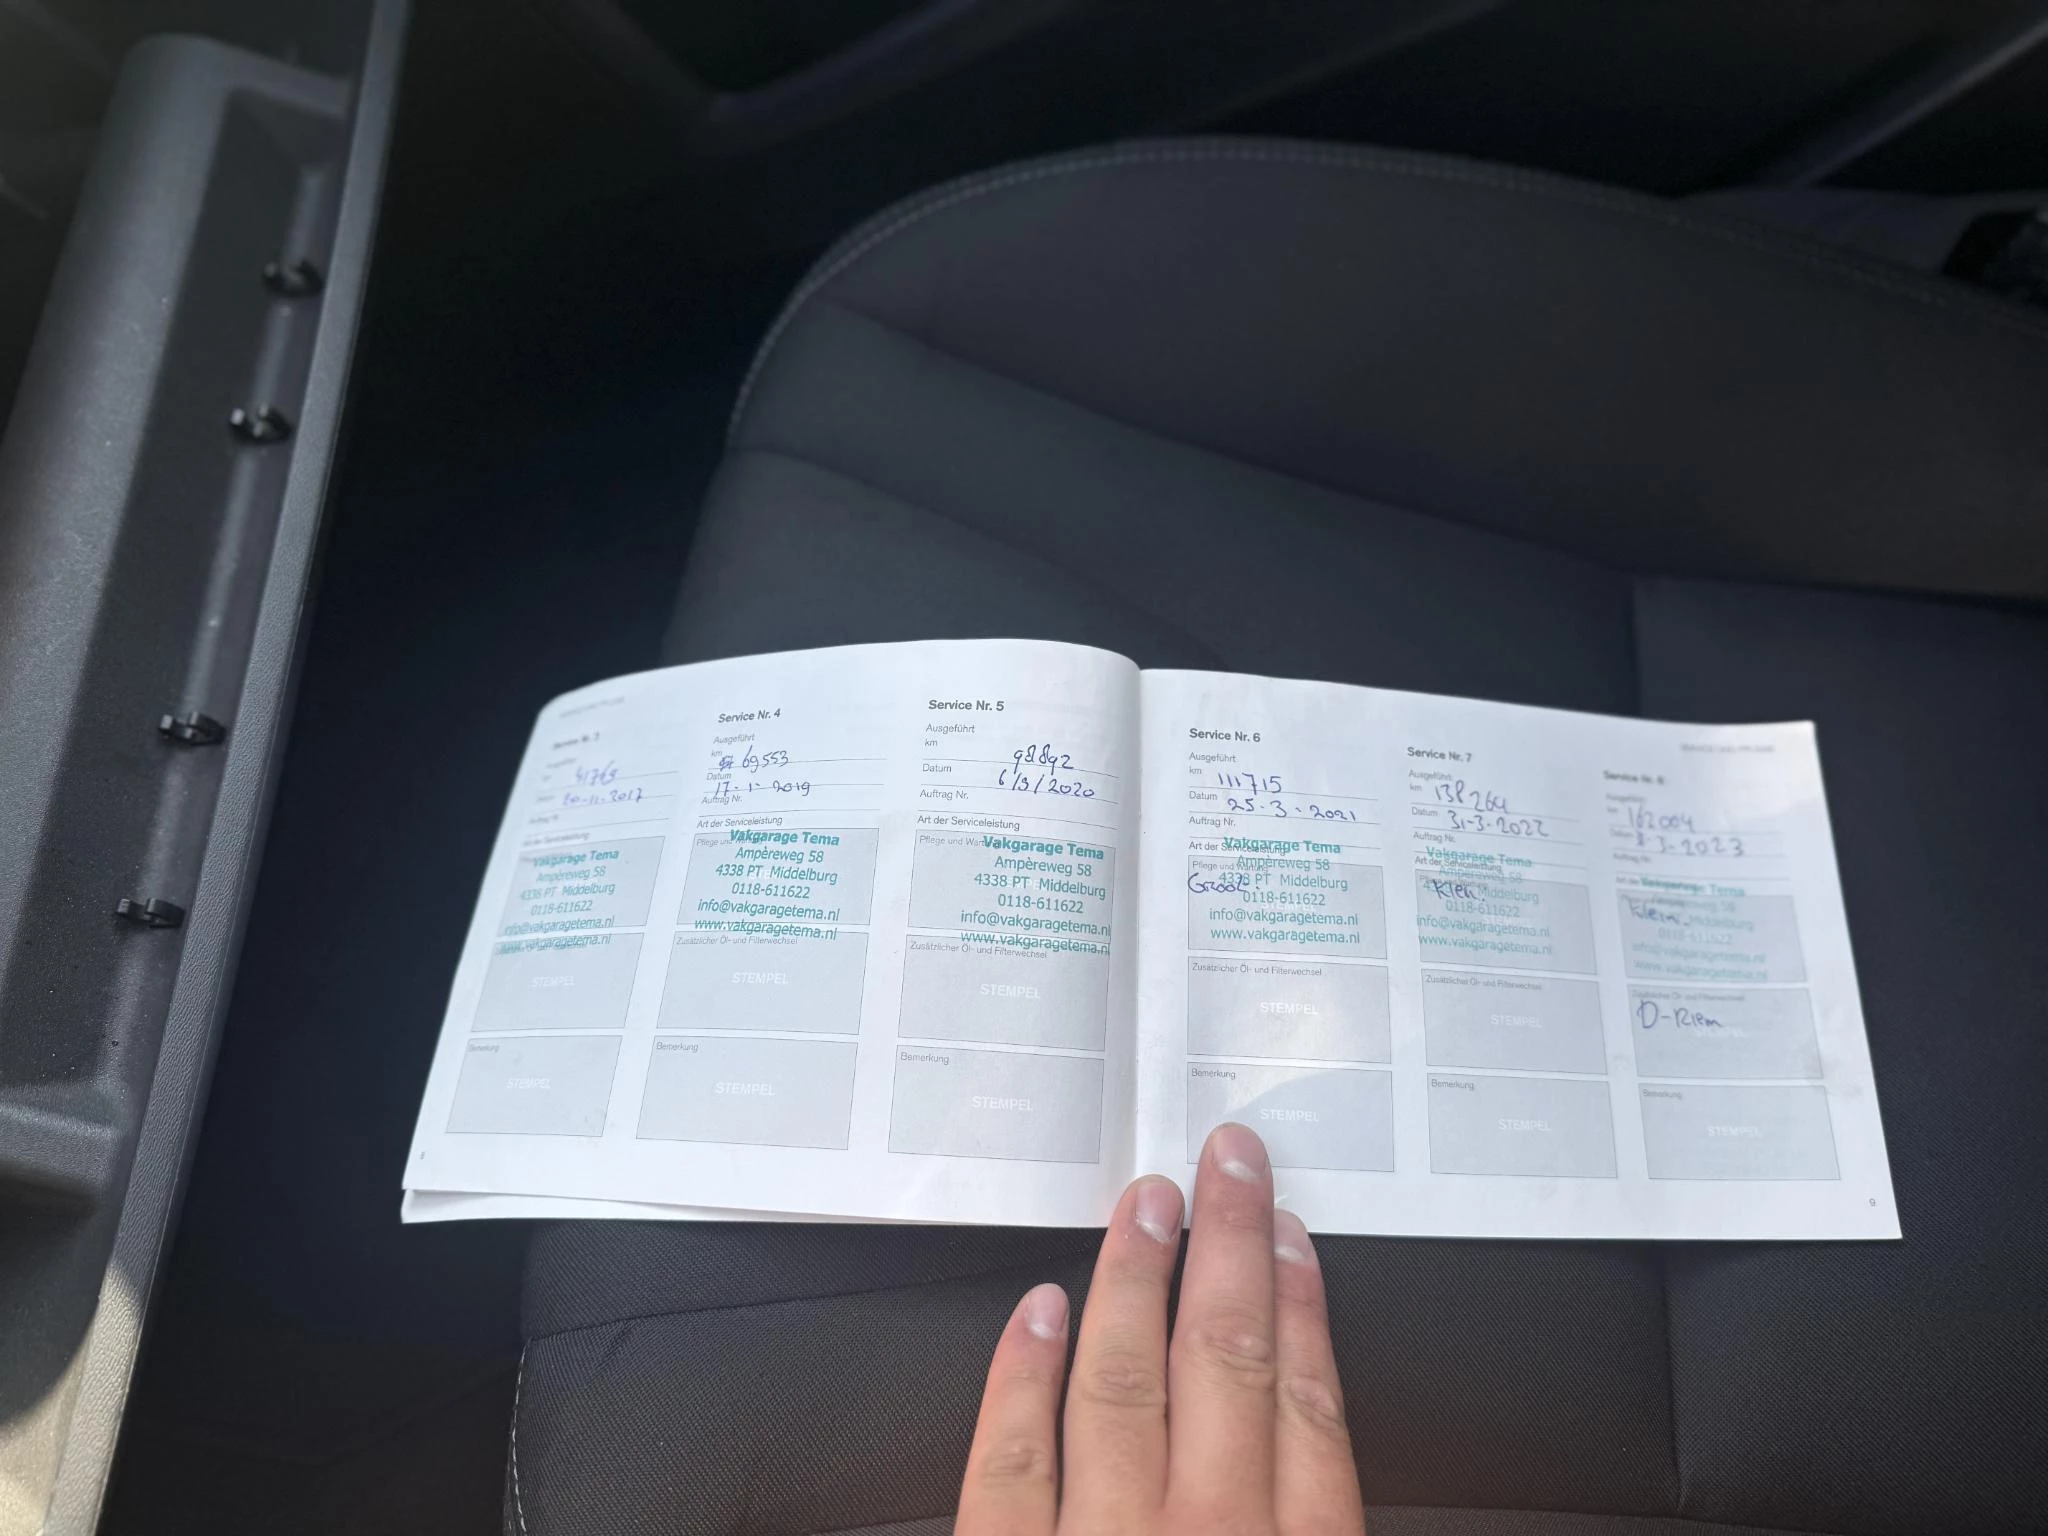 Service Nr. 3
Ausgeführt
km 41769
Datum 20-11-2017
Auftrag Nr.
Art der Serviceleistung
Vakgarage Tema
Ampèreweg 58
4338 PT Middelburg
0118-611622
info@vakgaragetema.nl
www.vakgaragetema.nl
STEMPEL
Bemerkung
STEMPEL
8
Service Nr. 4
Ausgeführt
km 69553
Datum 17-1-2019
Auftrag Nr.
Art der Serviceleistung
Pflege und Wartung
Vakgarage Tema
Ampèreweg 58
4338 PT Middelburg
0118-611622
info@vakgaragetema.nl
www.vakgaragetema.nl
Zusätzlicher Öl- und Filterwechsel
STEMPEL
Bemerkung
STEMPEL
Service Nr. 5
Ausgeführt
km 98892
Datum 6/3/2020
Auftrag Nr.
Art der Serviceleistung
Pflege und Wartung
Vakgarage Tema
Ampèreweg 58
4338 PT Middelburg
0118-611622
info@vakgaragetema.nl
www.vakgaragetema.nl
Zusätzlicher Öl- und Filterwechsel
STEMPEL
Bemerkung
STEMPEL
Service Nr. 6
Ausgeführt
km 111715
Datum 25-3-2021
Auftrag Nr.
Art der Serviceleistung
Pflege und Wartung
Groot.
Vakgarage Tema
Ampèreweg 58
4338 PT Middelburg
0118-611622
info@vakgaragetema.nl
www.vakgaragetema.nl
Zusätzlicher Öl- und Filterwechsel
STEMPEL
Bemerkung
STEMPEL
Service Nr. 7
Ausgeführt
km 138264
Datum 31-3-2022
Auftrag Nr.
Art der Serviceleistung
Vakgarage Tema
Ampèreweg 58
Middelburg
0118-611622
info@vakgaragetema.nl
www.vakgaragetema.nl
Zusätzlicher Öl- und Filterwechsel
STEMPEL
Bemerkung
STEMPEL
Service Nr. 8
Ausgeführt
km 162004
Datum 8-3-2023
Auftrag Nr.
Vakgarage Tema
Klein.
Middelburg
0118-611622
info@vakgaragetema.nl
www.vakgaragetema.nl
Zusätzlicher Öl- und Filterwechsel
D-Riem
STEMPEL
Bemerkung
STEMPEL
9